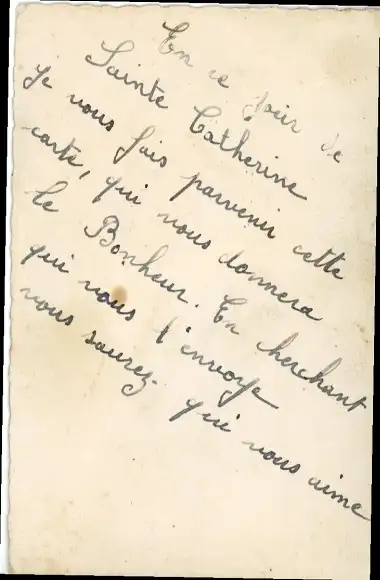 En ce jour de
Sainte Catherine
je vous fais parvenir cette
carte, qui vous donnera
le Bonheur. En cherchant
qui vous l'envoye
vous saurez qui vous aime